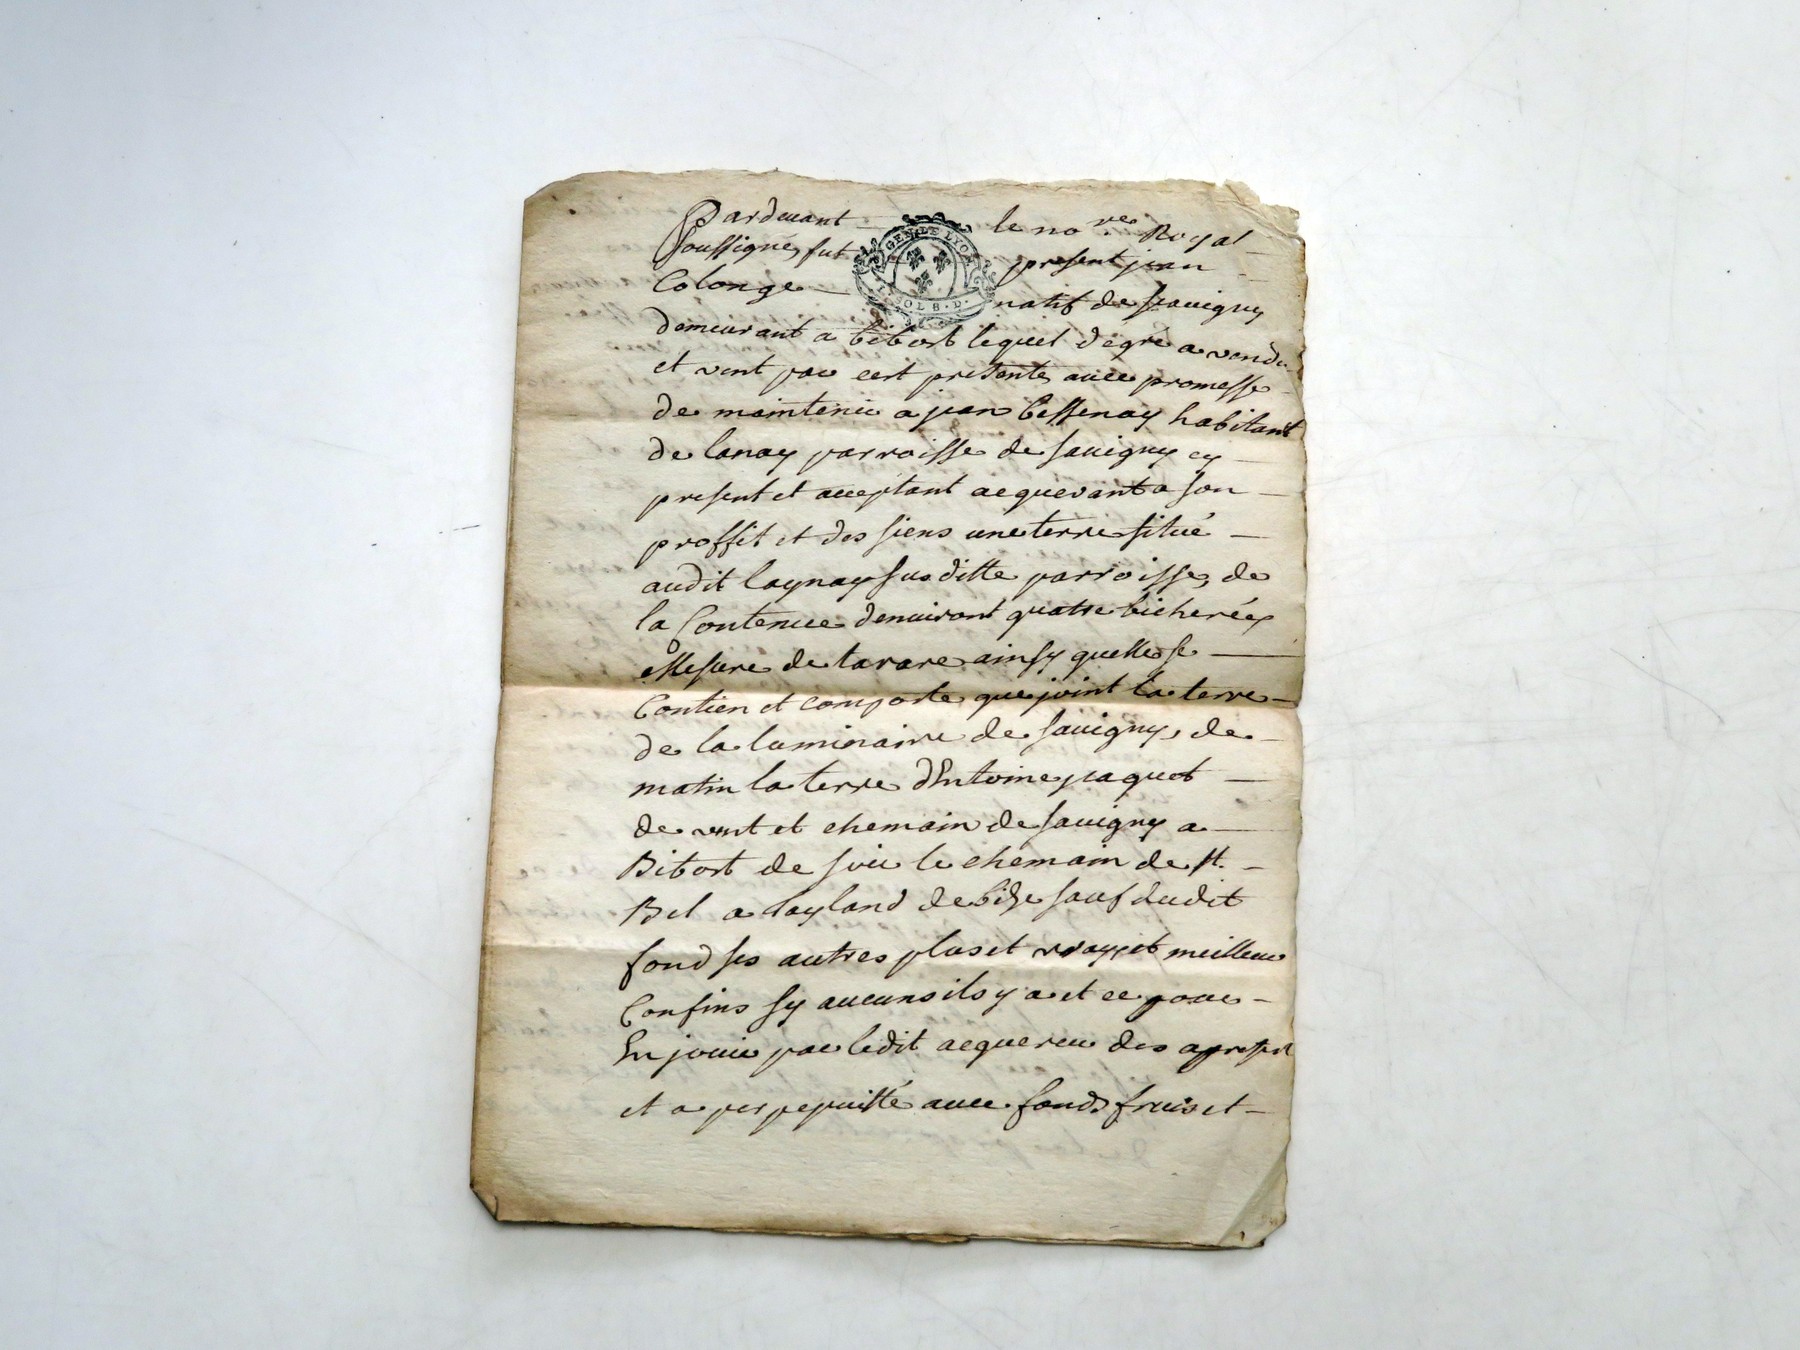 Pardevant le no.re Royal
soussigné, fut present jean
Colonge natif de savigny
GEN. DE LYON
SOLS. D.
demeurant a bibost lequel degré a vendu
et vent par cest presente avec promesse
de maintenir a jean bessenay habitant
de lanay parroisse de savigny cy
present et acceptant acquerant a son
proffit et des siens une terre situé
audit laynay susditte parroisse, de
la Contenue denviront quatre bicherées
Mesure de tarare ainsy quelle se
Contien et comporte que joint la terre
de la luminaire de savigny, de
matin la terre dAntoine paquet
de vent et chemain de savigny a
Bibost de soir le chemain de st.
Bel a layland de bize sauf dudit
fond ses autres plus et vray et meilleur
Confins sy aucuns ils y a et ce pour
En jouir par ledit acquereur des apresent
et a perpepuitté avec fonds fruis et